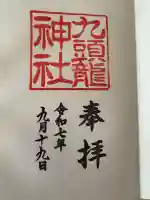 奉拝
九頭龍
神社
令和七年
九月十九日